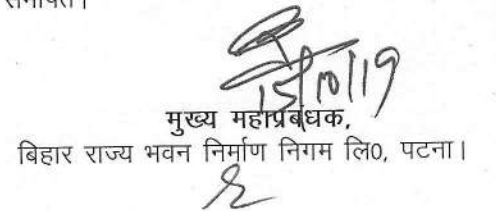 समर्पित।
15/10/19
मुख्य महाप्रबंधक,
बिहार राज्य भवन निर्माण निगम लि0, पटना।